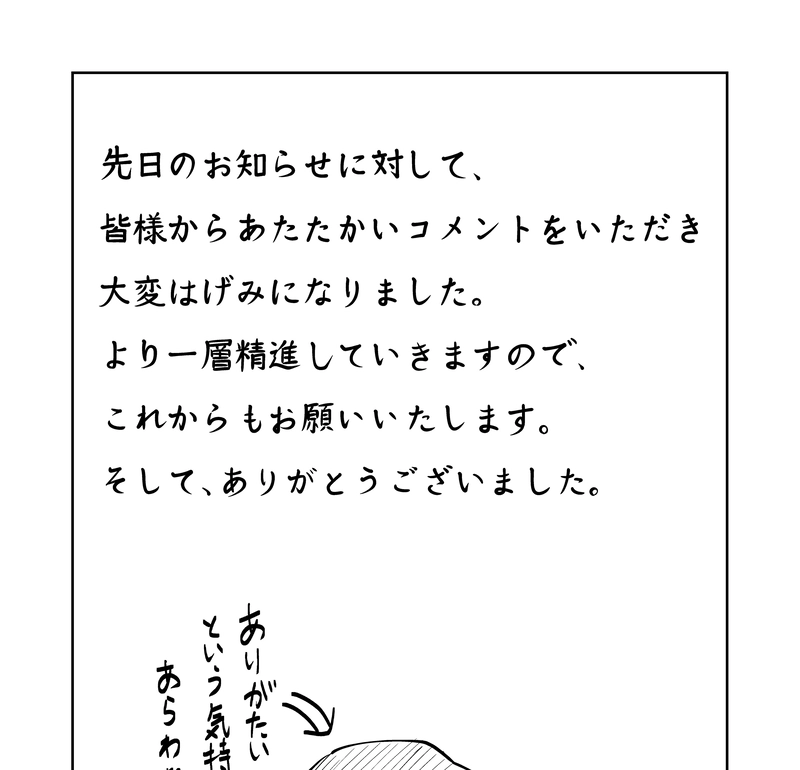 先日のお知らせに対して、
皆様からあたたかいコメントをいただき
大変はげみになりました。
より一層精進していきますので、
これからもお願いいたします。
そして、ありがとうございました。
ありがたい
という気持
あらわ